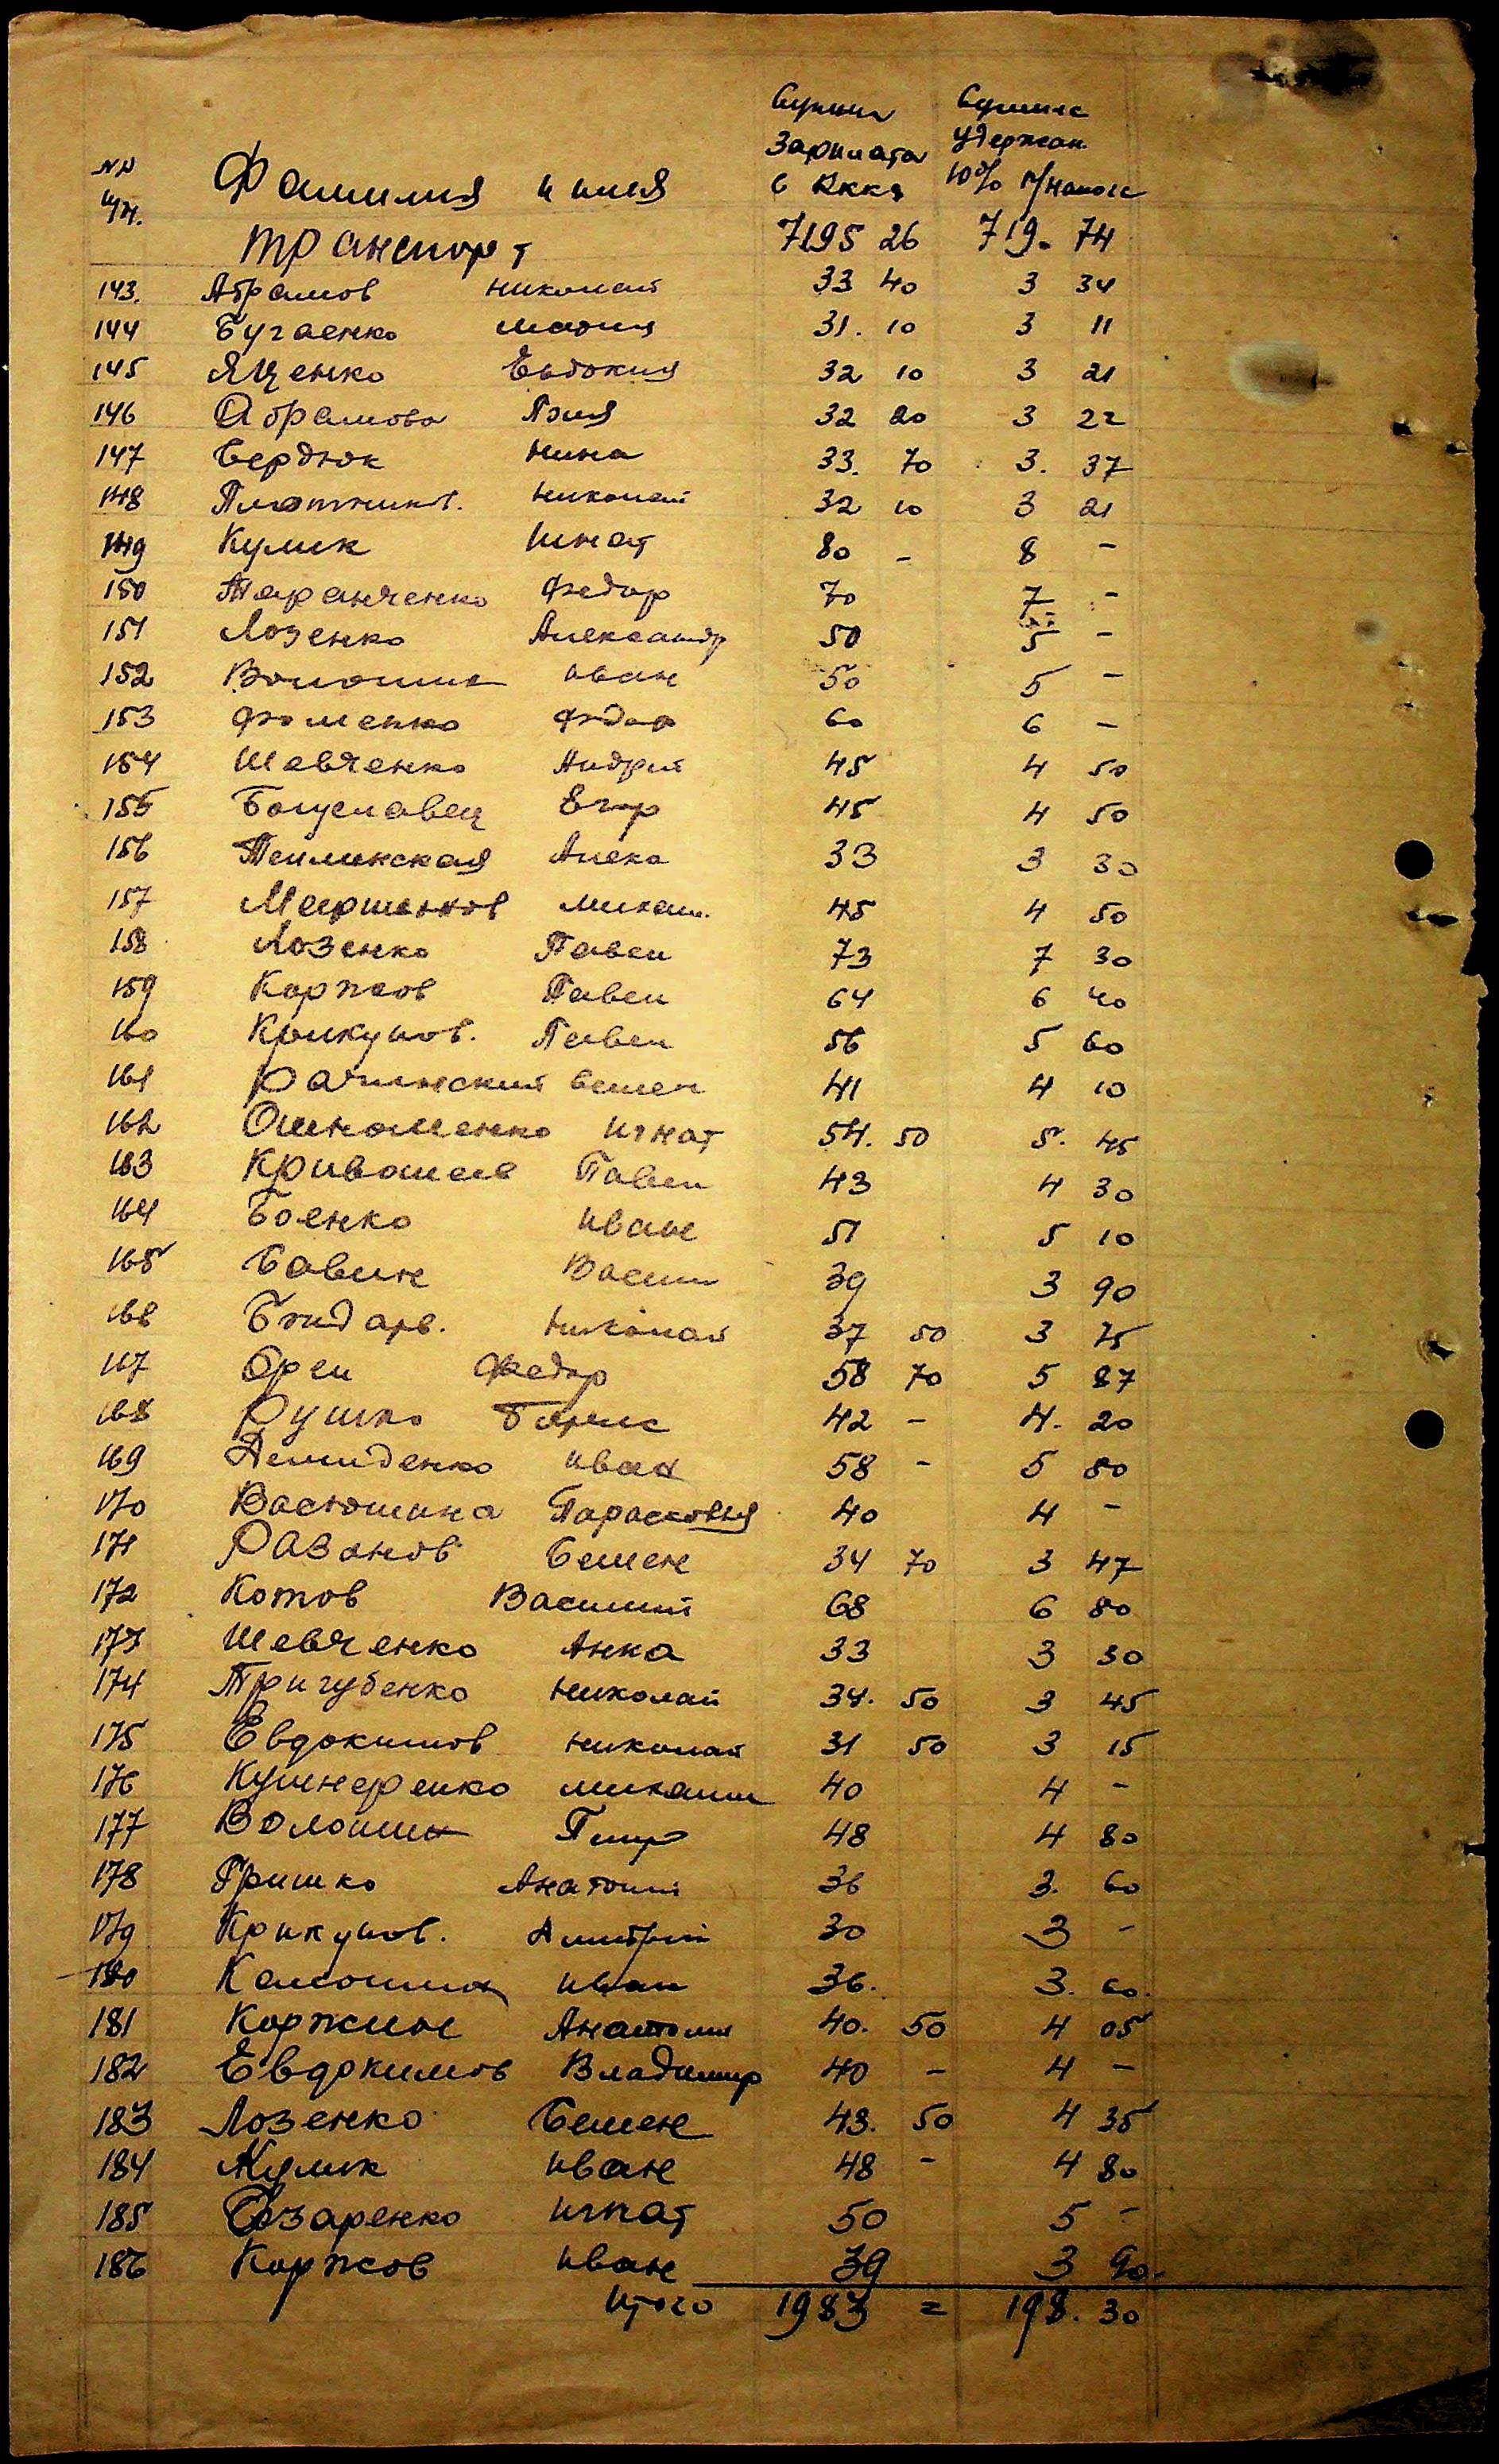 Сумма Сумма
Зарплата Удержан.
в Rккя 10% п/налог
NN Фамилия и имя
п/п.
Транспорт 7195 26 719. 74
143. Абрамов Николай 33 40 3 34
144 Бугаенко Мария 31. 10 3 11
145 Яценко Евдокия 32 10 3 21
146 Абрамова 32 20 3 22
147 Сердюк Нина 33. 70 3. 37
148 Плотников. Николай 32 10 3 21
149 Кулик Игнат 80 - 8 -
150 Таранченко Федор 70 7 -
151 Лозенко Александр 50 5 -
152 Волошин Иван 50 5 -
153 Фоменко Федор 60 6 -
154 Шевченко Андрей 45 4 50
155 Богуславец Егор 45 4 50
156 33 3 30
157 Михаил. 45 4 50
158 Лозенко Павел 73 7 30
159 Коржов Павел 64 6 40
160 Крикунов. Павел 56 5 60
161 Рачинский Семен 41 4 10
162 Игнат 54. 50 5. 45
163 Кривошеев Павел 43 4 30
164 Боенко Иван 51 5 10
165 Савин Васил 39 3 90
166 Николай 37 50 3 75
167 Орел Федор 58 70 5 87
168 Рушко Борис 42 - 4. 20
169 Демиденко Иван 58 - 5 80
170 Васюшина Парасковья 40 4 -
171 Разанов Семен 34 70 3 47
172 Котов Василий 68 6 80
173 Шевченко Анна 33 3 30
174 Тригубенко Николай 34. 50 3 45
175 Евдокимов Николай 31 50 3 15
176 Кушнеренко Михаил 40 4 -
177 Волошин Петр 48 4 80
178 Гришко Анатолий 36 3. 60
179 Крикунов. Дмитрий 30 3 -
180 Иван 36. 3. 60.
181 Коржов Анатолий 40. 50 4 05
182 Евдокимов Владимир 40 - 4 -
183 Лозенко Семен 43. 50 4 35
184 Кулик Иван 48 - 4 80
185 Озаренко Игнат 50 5 -
186 Коржов Иван 39 3 90.
Итого 1983 = 198. 30